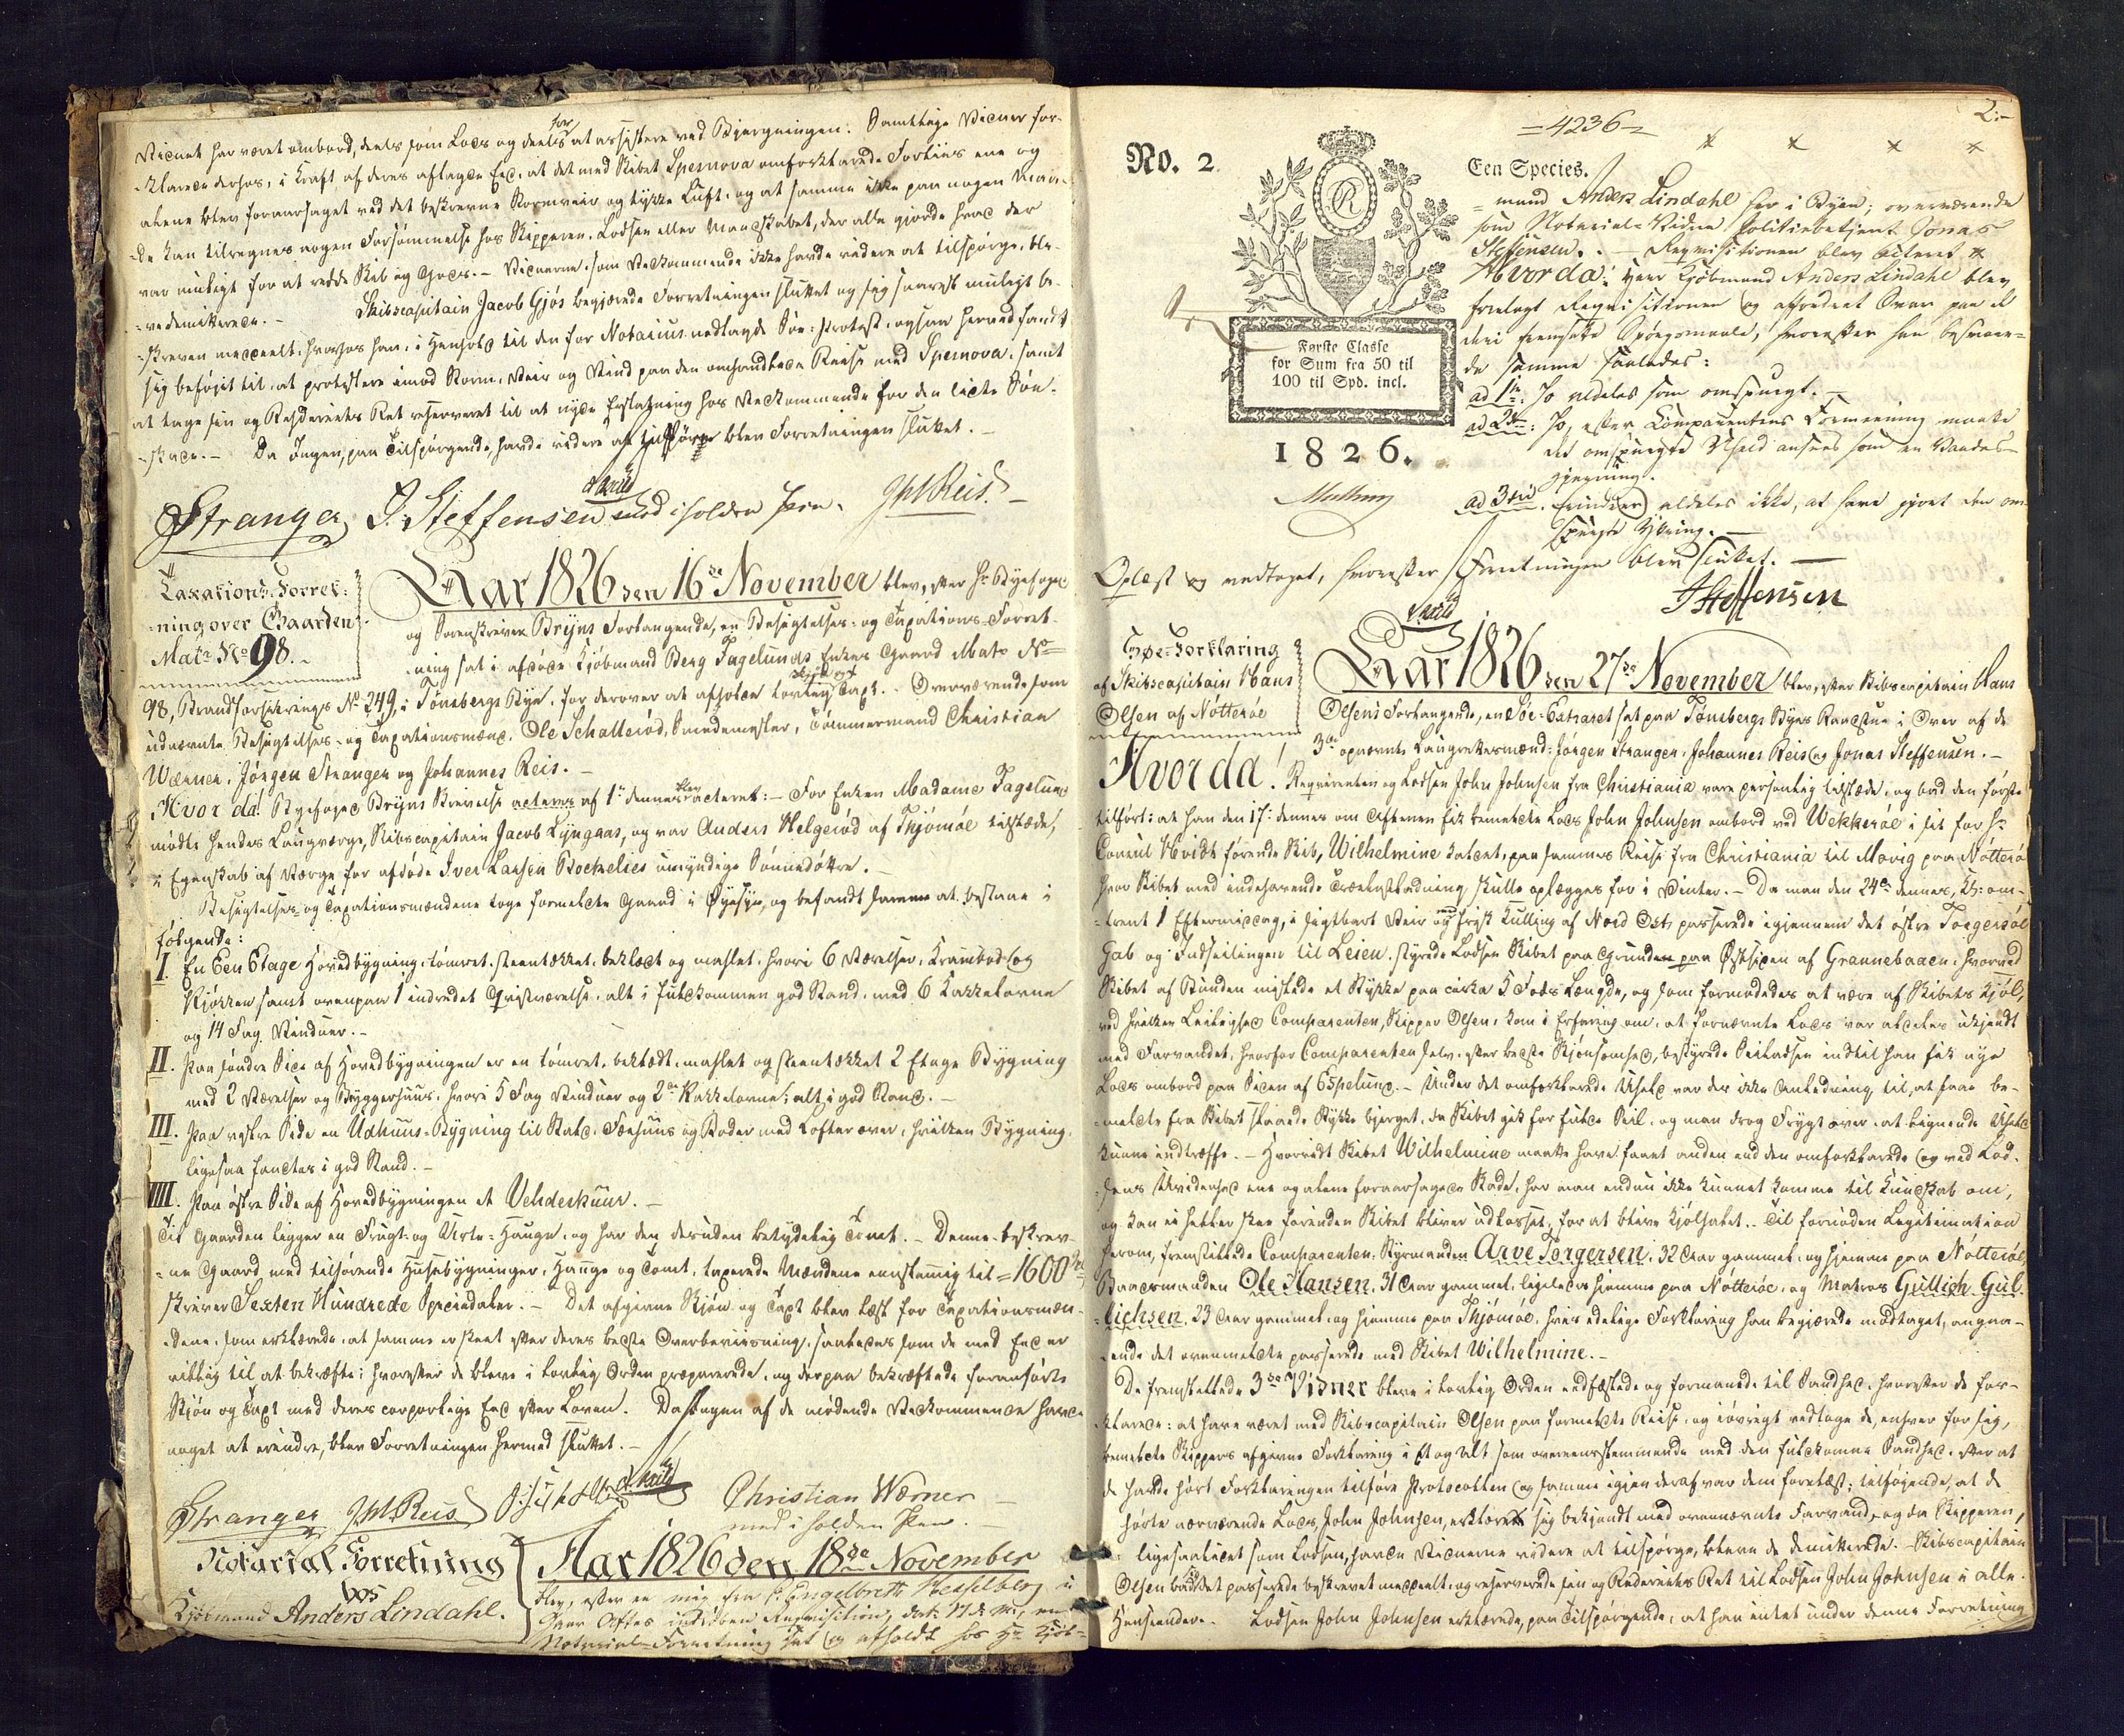 Vidnet har været ombord, deels som Lods og deels for at assistere ved Bjergningen. Samtlige Vidner for-
klarede derhos, i Kraft af deres aflagde Eed, at det med Skibet Spernova omforklarede Forliis ene og
alene blev foraarsaget ved det beskrevne Stormveir og tykke Luft, og at samme ikke paa nogen Maa-
de kan tilregnes nogen Forsømmelse hos Skipperen, Lodsen eller Mandskabet, der alle gjorde hvad der
var muligt for at redde Skib og Gods. – Vidnerne, som Vedkommende ikke havde videre at tilspørge, ble-
ve demitterede. – Skibscapitain Jacob Gjös begjærede Forretningen sluttet og sig snarest muligt be-
skreven meddeelt, hvorhos han, i Henhold til den for Notarius nedlagde Søe-Protest, ogsaa herved fandt
sig beføjet til at protestere imod Storm, Veir og Vind paa den omhandlede Reise med Spernova, samt
at tage sin og Rhederiets Ret reserveret til at nyde Erstatning hos Vedkommende for den lidte Søe-
skade. – Da Ingen, paa Tilspørgende, havde videre at tilføre blev Forretningen sluttet. –
Stranger J. Steffensen med iholden Pen. JHReis. –
Taxations-Forret-
ning over Gaarden
Matr No 98. –
Aar 1826 den 16de November blev, efter Hr. Byefoged
og Sorenskriver Bryns Forlangende, en Besigtelses- og Taxations-Forret-
ning sat i afdøde Kjøbmand Berg Fagelunds Enkes Gaard Matr No
98, Brandforsikrings No 249, i Tönsbergs Bye, for derover at afholde lovlig Taxt. – Overværende som
udnævnte Besigtelses- og Taxationsmænd, Ole Schallerød, Smedemester, Tømmermand Christian
Wærner, Jörgen Stranger og Johannes Reis. –
Hvor da! Byefoged Bryns Skrivelse acteres af 1ste dennes blev acteret: – For Enken Madame Fagelund
mødte hendes Laugværge, Skibscapitain Jacob Lyngaas, og var Anders Helgerød af Thjømøe tilstæde,
i Egenskab af Værge for afdøde Iver Larsen Bockelies umyndige Sønnedøttre. –
Besigtelses- og Taxationsmændene toge formeldte Gaard i Øyesyn, og befandt samme at bestaae i
følgende:
I. En Een Etage Hovedbygning, tømret, steentækket, beklædt og mahlet, hvori 6 Værelser, Krambod og
Kjøkken samt ovenpaa 1 indredet Qvistværelse, alt i fuldkommen god Stand, med 6 Kakkelovne
og 14 Fag Vinduer. –
II. Paa søndre Side af Hovedbygningen er en tømret, beklædt, mahlet og steentækket 2 Etage Bygning
med 2 Værelser og Bryggerhuus, hvori 5 Fag Vinduer og 2de Kakkelovne; alt i god Stand. –
III. Paa vestre Side en Udhuus-Bygning til Stald, Foehuus og Boder med Lofter over, hvilken Bygning
ligesaa fandtes i god Stand. –
IIII. Paa østre Side af Hovedbygningen et Vehderskuur. –
Til Gaarden ligger en Frugt- og Urte-Hauge, og har den desuden betydelig Tomt. – Denne beskrev-
ne Gaard med tilhørende Huusebygninger, Hauge og Tomt, taxerede Mændene eenstemmig til = 1600 Spd
skriver Sexten Hundrede Speciedaler. – Det afgivne Skjøn og Taxt blev læst for Taxationsmæn-
dene, som erklærede, at samme er skeet efter deres bedste Overbeviisning, saaledes som de med Eed er
villig til at bekræfte; hvorefter de bleve i lovlig Orden præparerede, og derpaa bekræftede foranførte
Skjøn og Taxt med deres corporlige Eed efter Loven. Da Ingen af de mødende Vedkommende havde
noget at erindre, blev Forretningen hermed sluttet. –
Stranger JHReis Christian Wærner –
med iholden Pen. –
Notarial Forretning
hos
Kjøbmand Anders Lindahl.
Aar 1826 den 18de November
blev, efter en mig fra P. Engelbreth Hesselberg i
Gaar Aftes indløben Requisition, dat: 17 d. M., en
Notarial-Forretning sat og afholdt hos Hr Kjøb-
2. –
= 4236 =
No. 2.
Een Species.
R
Første Classe
for Sum fra 50 til
100 til Spd. incl.
1826.
mand Anders Lindahl her i Byen; overværende
som Notarial-Vidne Politiebetjent Jonas
Steffensen. – Requisitionen blev acteret
Hvor da: Herr Kjøbmand Anders Lindahl blev
forelagt Requisitionen og affordret Svar paa de
deri fremsatte Spørgsmaale, hvorefter han besvare-
de samme saaledes:
ad 1ste: Jo aldeles som omspurgt. –
ad 2den: Jo, efter Comparentens Formeening maatte
det omspurgte Uheld ansees som en Vaades-
gjerning.
ad 3die. Erindrer aldeles ikke, at have gjort den om-
spurgte Yttring. –
Oplæst og vedtaget, hvorefter Forretningen blev sluttet. –
JSteffensen
Søe-Forklaring
af Skibscapitain Hans
Olsen af Nötteröe
Aar 1826 den 27de November blev, efter Skibscapitain Hans
Olsens Forlangende, en Søe-Extraret sat paa Tönsbergs Byes Raadstue i Over af de
3de opnævnte Laugrettesmænd: Jörgen Stranger, Johannes Reis og Jonas Steffensen. –
Hvor da! Requirenten og Lodsen John Johnsen fra Christiania vare personlig tilstæde, og bød den første
tilført: at han den 17de dennes om Aftenen fik bemeldte Lods John Johnsen ombord ved Wekkeröe i sit for Hr
Consul Hvidt førende Skib, Wilhelmine kaldet, paa sammes Reise fra Christiania til Movig paa Nötterö
hvor Skibet med indehavende Trælastladning skulle oplægges for i Vinter. – Da man den 24de dennes, Kl: om-
trent 1 Eftermiddag, i sigtbart Veir og frisk Kulling af Nord Ost, passerede igjennem det østre Torgersøe
Gab og Indseilingen til Leien, styrede Lodsen Skibet paa Grunden paa Østsiden af Grannebaaen, hvorved
Skibet af Bunden mistede et Stykke paa cirka 5 Fods Længde, og som formodedes at være af Skibets Kjøl,
ved hvilken Leilighed Comparenten, Skipper Olsen, kom i Erfaring om, at fornævnte Lods var aldeles ukjendt
med Farvandet, hvorfor Comparenten selv, efter bedste Skjønsomhed, bestyrede Seiladsen indtil han fik nye
Lods ombord paa Siden af Espelund. – Under det omforklarede Uheld var der ikke Anledning til, at faae be-
meldte fra Skibet staaede Stykke bjerget, da Skibet gik for fulde Seil, og man drog Frygt over at lignende Uheld
kunne indtræffe. – Hvorvidt Skibet Wilhelmine maatte have faaet anden end den omforklarede og ved Lod-
sens Uvidenhed ene og alene foraarsagede Skade, har man endnu ikke kunnet komme til Kundskab om,
og kan ei heller skee forinden Skibet bliver udlosset, for at blive kjølhalet. – Til fornøden Legitimation
herom, fremstillede Comparenten, Styrmanden Arve Torgersen, 32 Aar gammel, og hjemme paa Nötteröe,
Baadsmanden Ole Hansen, 31 Aar gammel, ligeledes hjemme paa Nötteröe, og Matros Gullich Gul-
lichsen, 23 Aar gammel, og hjemme paa Thjömöe, hvis edelige Forklaring han begjærede modtaget, angaa-
ende det ovenmeldte passerede med Skibet Wilhelmine. –
De fremstillede 3de Vidner bleve i lovlig Orden eedfæstede og formanede til Sandhed, hvorefter de for-
klarede: at have været med Skibscapitain Olsen paa formeldte Reise, og iøvrigt vedtoge de, enhver for sig,
bemeldte Skippers afgivne Forklaring i Et og Alt som overeensstemmende med den fuldkomne Sandhed, efter at
de havde hørt Forklaringen tilføre Protocollen og samme igjen deraf var dem forelæst; tilføjende, at de
hørte nærværende Lods, John Johnsen, erklære sig bekjendt med ovennævnte Farvand, og da Skipperen,
ligesaalidet som Lodsen, havde Vidnerne videre at tilspørge, bleve de demitterede. – Skibscapitain
Olsen bad det passerede beskrevet meddeelt, og reserverede sin og Rederiets Ret til Lodsen John Johnsen i alle
Henseender. – Lodsen John Johnsen erklærede, paa Tilspørgende, at han intet under denne Forretning